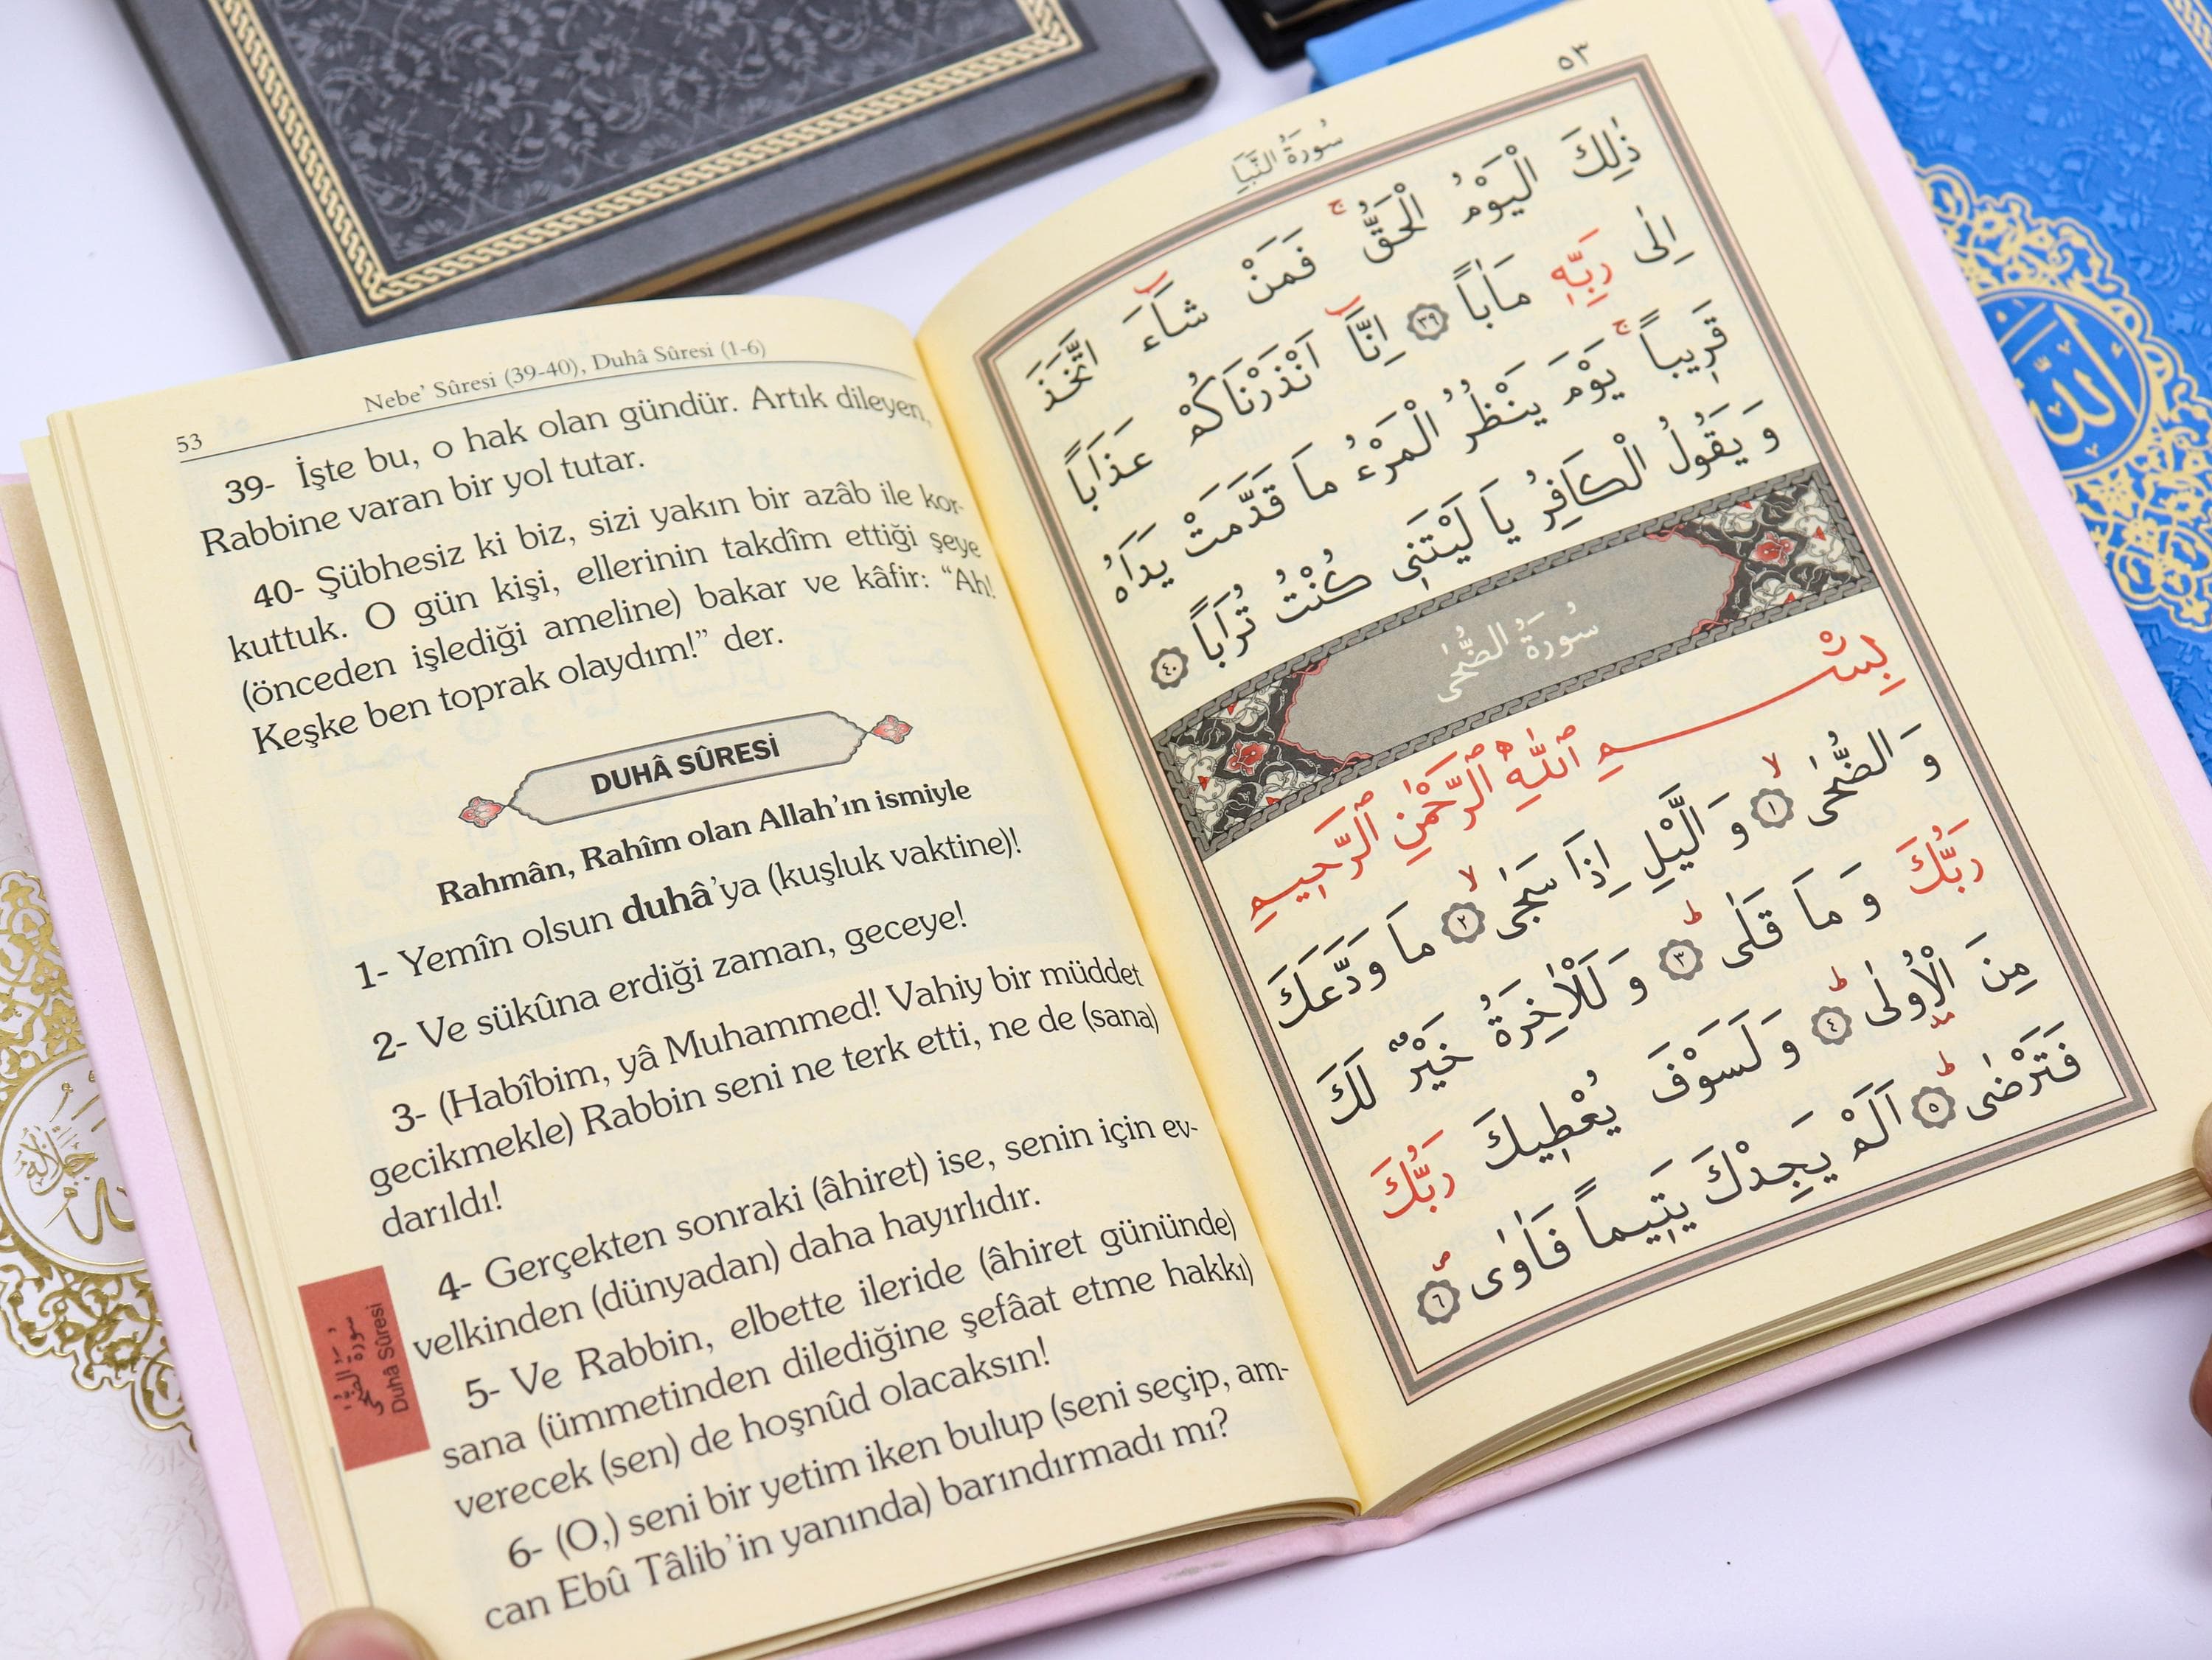 53
Nebe’ Sûresi (39-40), Duhâ Sûresi (1-6)
39- İşte bu, o hak olan gündür. Artık dileyen,
Rabbine varan bir yol tutar.
40- Şübhesiz ki biz, sizi yakın bir azâb ile kor-
kuttuk. O gün kişi, ellerinin takdîm ettiği şeye
(önceden işlediği ameline) bakar ve kâfir: “Ah!
Keşke ben toprak olaydım!” der.
DUHÂ SÛRESİ
Rahmân, Rahîm olan Allah’ın ismiyle
1- Yemîn olsun duhâ’ya (kuşluk vaktine)!
2- Ve sükûna erdiği zaman, geceye!
3- (Habîbim, yâ Muhammed! Vahiy bir müddet
gecikmekle) Rabbin seni ne terk etti, ne de (sana)
darıldı!
4- Gerçekten sonraki (âhiret) ise, senin için ev-
velkinden (dünyadan) daha hayırlıdır.
5- Ve Rabbin, elbette ileride (âhiret gününde)
sana (ümmetinden dilediğine şefâat etme hakkı)
verecek (sen) de hoşnûd olacaksın!
6- (O,) seni bir yetim iken bulup (seni seçip, am-
can Ebû Tâlib’in yanında) barındırmadı mı?
سُورَةُ الضُّحٰى
Duhâ Sûresi
٥٣
سُورَةُ النَّبَأِ
ذٰلِكَ الْيَوْمُ الْحَقُّۚ فَمَنْ شَٓاءَ اتَّخَذَ
اِلٰى رَبِّه۪ مَاٰباً ٣٩ اِنَّٓا اَنْذَرْنَاكُمْ عَذَاباً
قَر۪يباًۚ يَوْمَ يَنْظُرُ الْمَرْءُ مَا قَدَّمَتْ يَدَاهُ
وَ يَقُولُ الْكَافِرُ يَا لَيْتَن۪ى كُنْتُ تُرَاباً ٤٠
سُورَةُ الضُّحٰى
بِسْمِ اللّٰهِ الرَّحْمٰنِ الرَّح۪يمِ
وَ الضُّحٰىۙ ١ وَ الَّيْلِ اِذَا سَجٰىۙ ٢ مَا وَدَّعَكَ
رَبُّكَ وَ مَا قَلٰىۜ ٣ وَ لَلْاٰخِرَةُ خَيْرٌ لَكَ
مِنَ الْاُو۫لٰىۜ ٤ وَ لَسَوْفَ يُعْط۪يكَ رَبُّكَ
فَتَرْضٰىۜ ٥ اَلَمْ يَجِدْكَ يَت۪يماً فَاٰوٰىۖ ٦
الله
جل جلاله